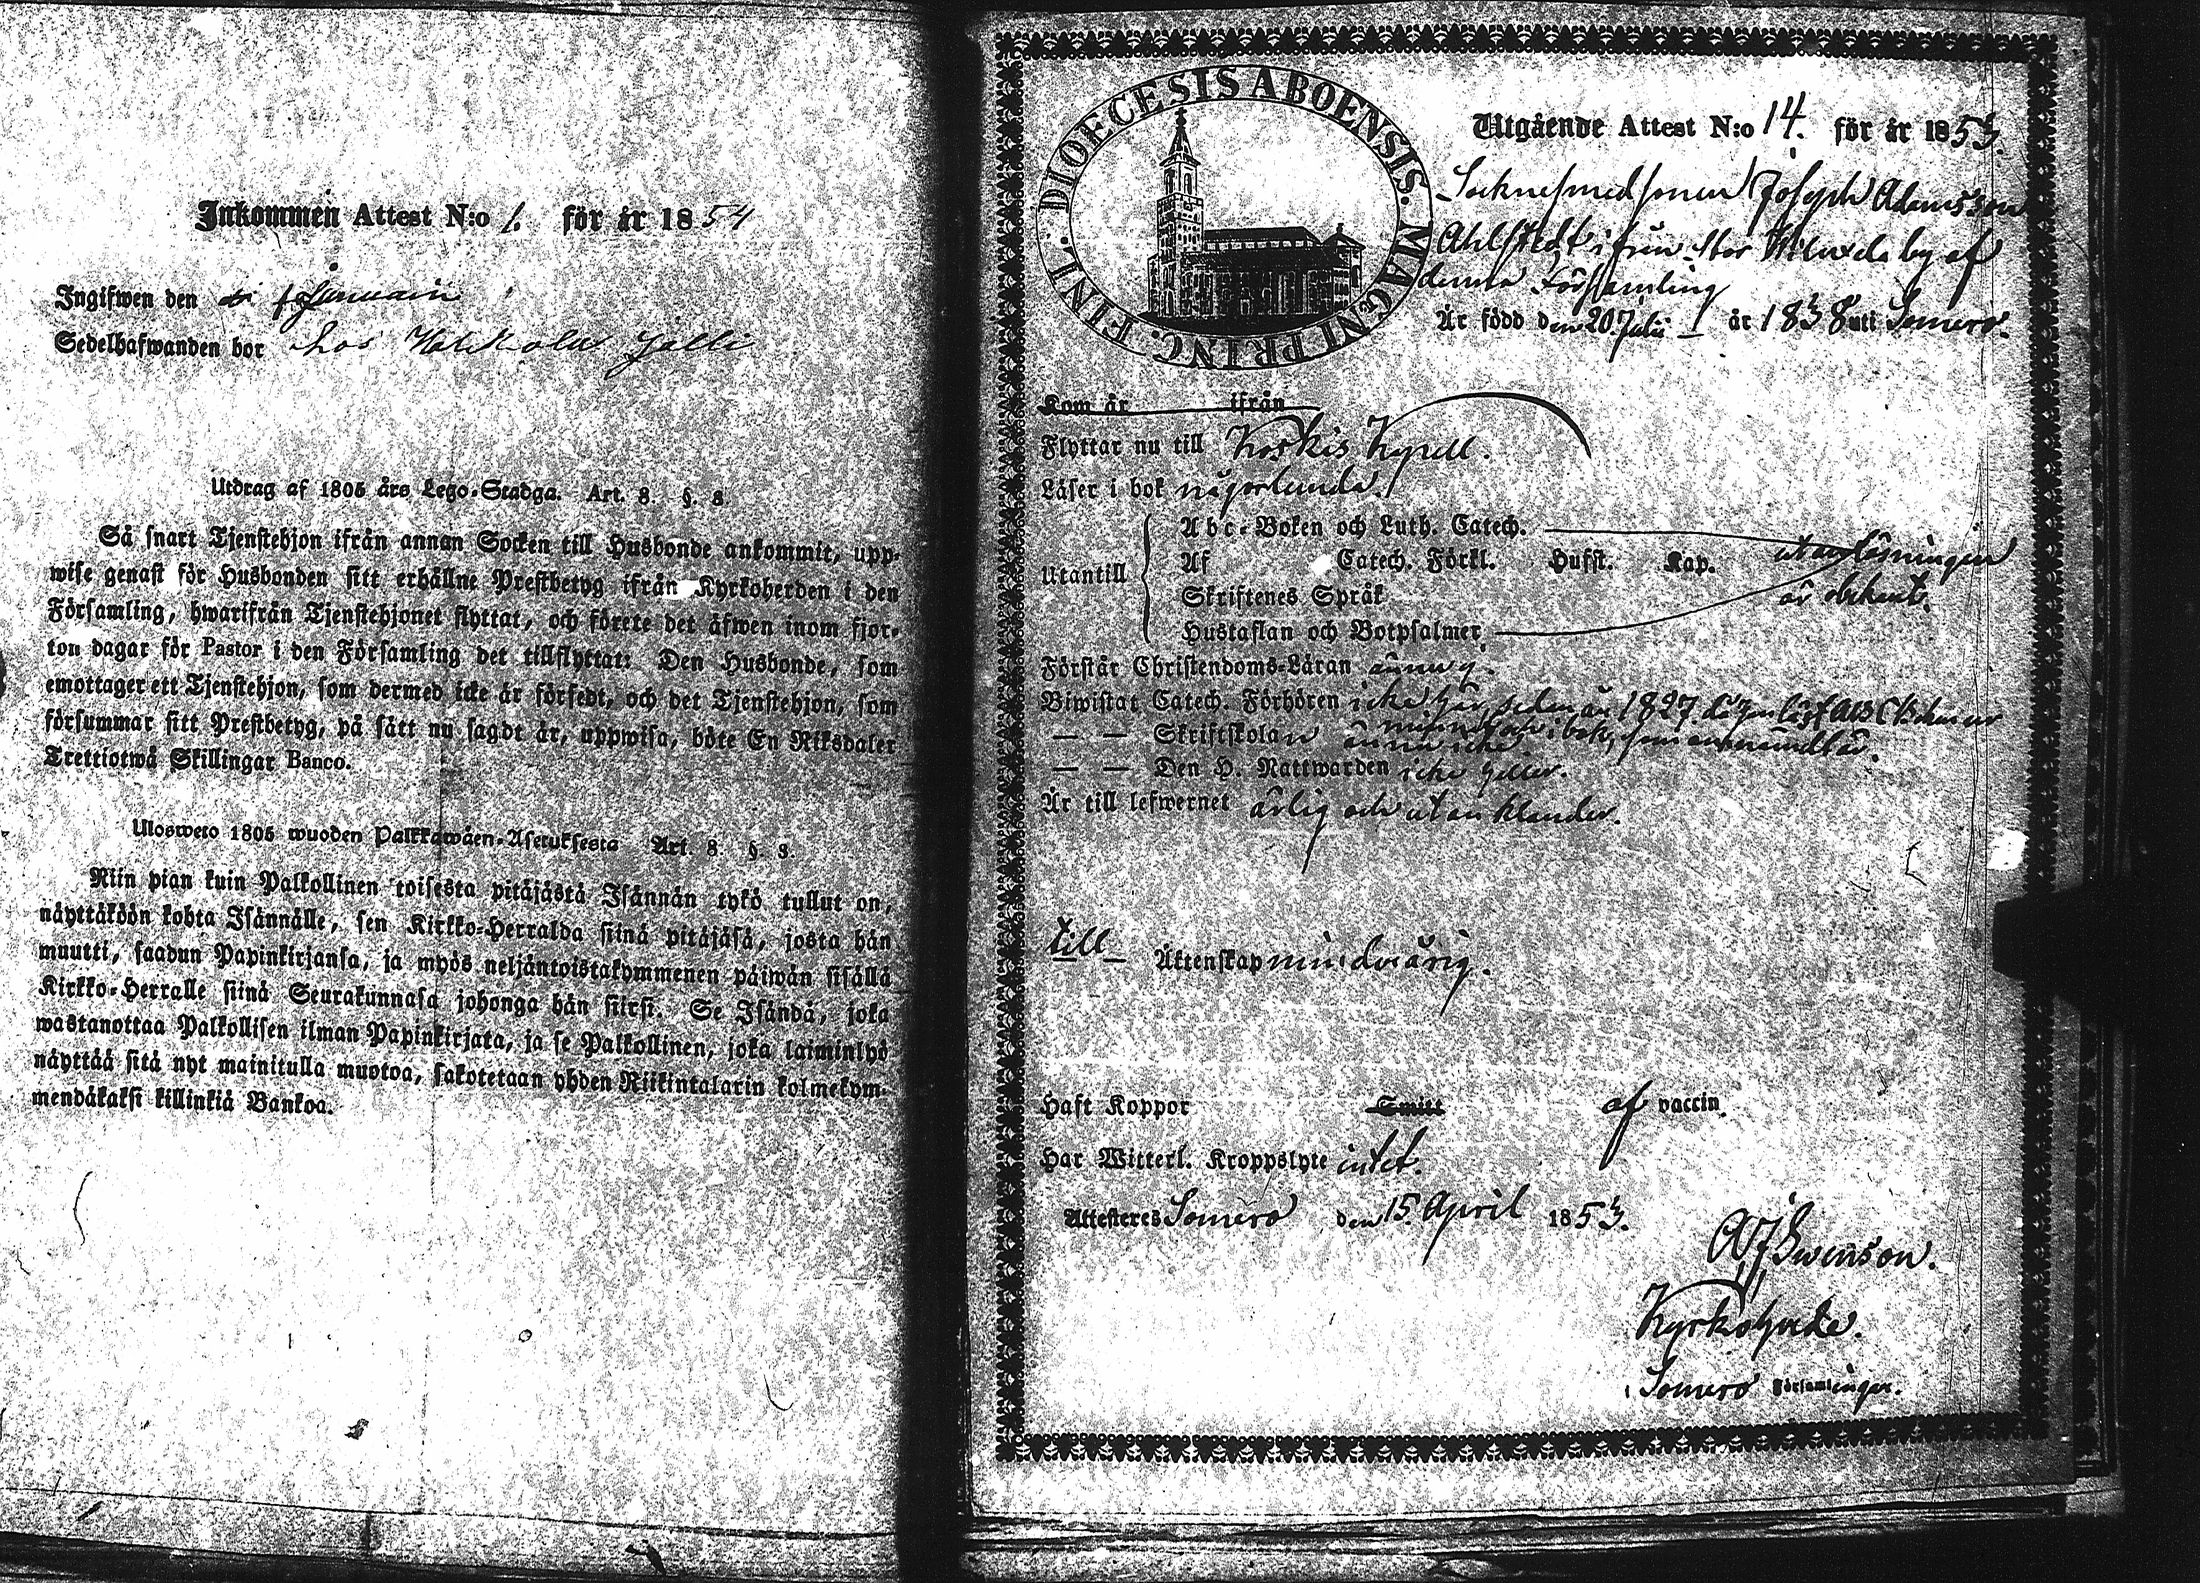 Inkommen Attest N:o 1. för år 1854
Ingifwen den Januari
Sedelhafwanden bor hos
Utdrag af 1805 års Lego-Stadga. Art. 8. §. 8.
Så snart Tjenstehjon ifrån annan Socken till Husbonde ankommit, upp-
wise genast för Husbonden sitt erhållne Prestbetyg ifrån Kyrkoherden i den
Församling, hwarifrån Tjenstehjonet flyttat, och förete det äfwen inom fjor-
ton dagar för Pastor i den Församling det tillflyttat: Den Husbonde, som
emottager ett Tjenstehjon, som dermed icke är försedt, och det Tjenstehjon, som
försummar sitt Prestbetyg, på sätt nu sagdt är, uppwisa, böte En Riksdaler
Trettiotwå Skillingar Banco.
Ulosweto 1805 wuoden Palkkawäen-Asetuksesta Art. 8. §. 8.
Niin pian kuin Palkollinen toisesta pitäjästä Isännän tykö tullut on,
näyttäköön kohta Isännälle, sen Kirkko-Herralda siinä pitäjäsä, josta hän
muutti, saadun Papinkirjansa, ja myös neljäntoistakymmenen päiwän sisällä
Kirkko-Herralle siinä Seurakunnasa johonga hän siirsi. Se Isändä, joka
wastanottaa Palkollisen ilman Papinkirjata, ja se Palkollinen, joka laiminlyö
näyttää sitä nyt mainitulla muotoa, sakotetaan yhden Riikintalarin kolmekym-
mendäkaksi killinkiä Bankoa.
FINL. DIOECESIS ABOENSIS. MAGNI PRINC.
Utgående Attest N:o 14. för år 1853.
Socknesmedssonen Joseph Adamsson
Ahlstedt ifrån Stor by af
denna Församling
Är född den 20 Julii år 1838 uti Somero.
Kom år ifrån
Flyttar nu till Koskis Kapell.
Läser i bok någorlunda.
Abc-Boken och Luth. Catech.
Utantill Af Catech. Förkl. Husst. Kap. utanläsningen
Skriftenes Språk är obekant.
Hustaflan och Botpsalmer
Förstår Christendoms-Läran ännu ej.
Biwistat Catech. Förhören icke här, sedan år 1827 då han läst ABC Boken ur
minnet och i bok, som annu
— — Skriftskolan ännu icke
— — Den H. Nattwarden icke heller.
Är till lefwernet ärlig och utan klander.
till Äktenskap minderårig.
Haft Koppor Smitt af vaccin.
Har Witterl. Kroppslyte intet.
Attesteres Somero den 15 April 1853.
A J Swenson.
Kyrkoherde.
i Somero Församlingar.